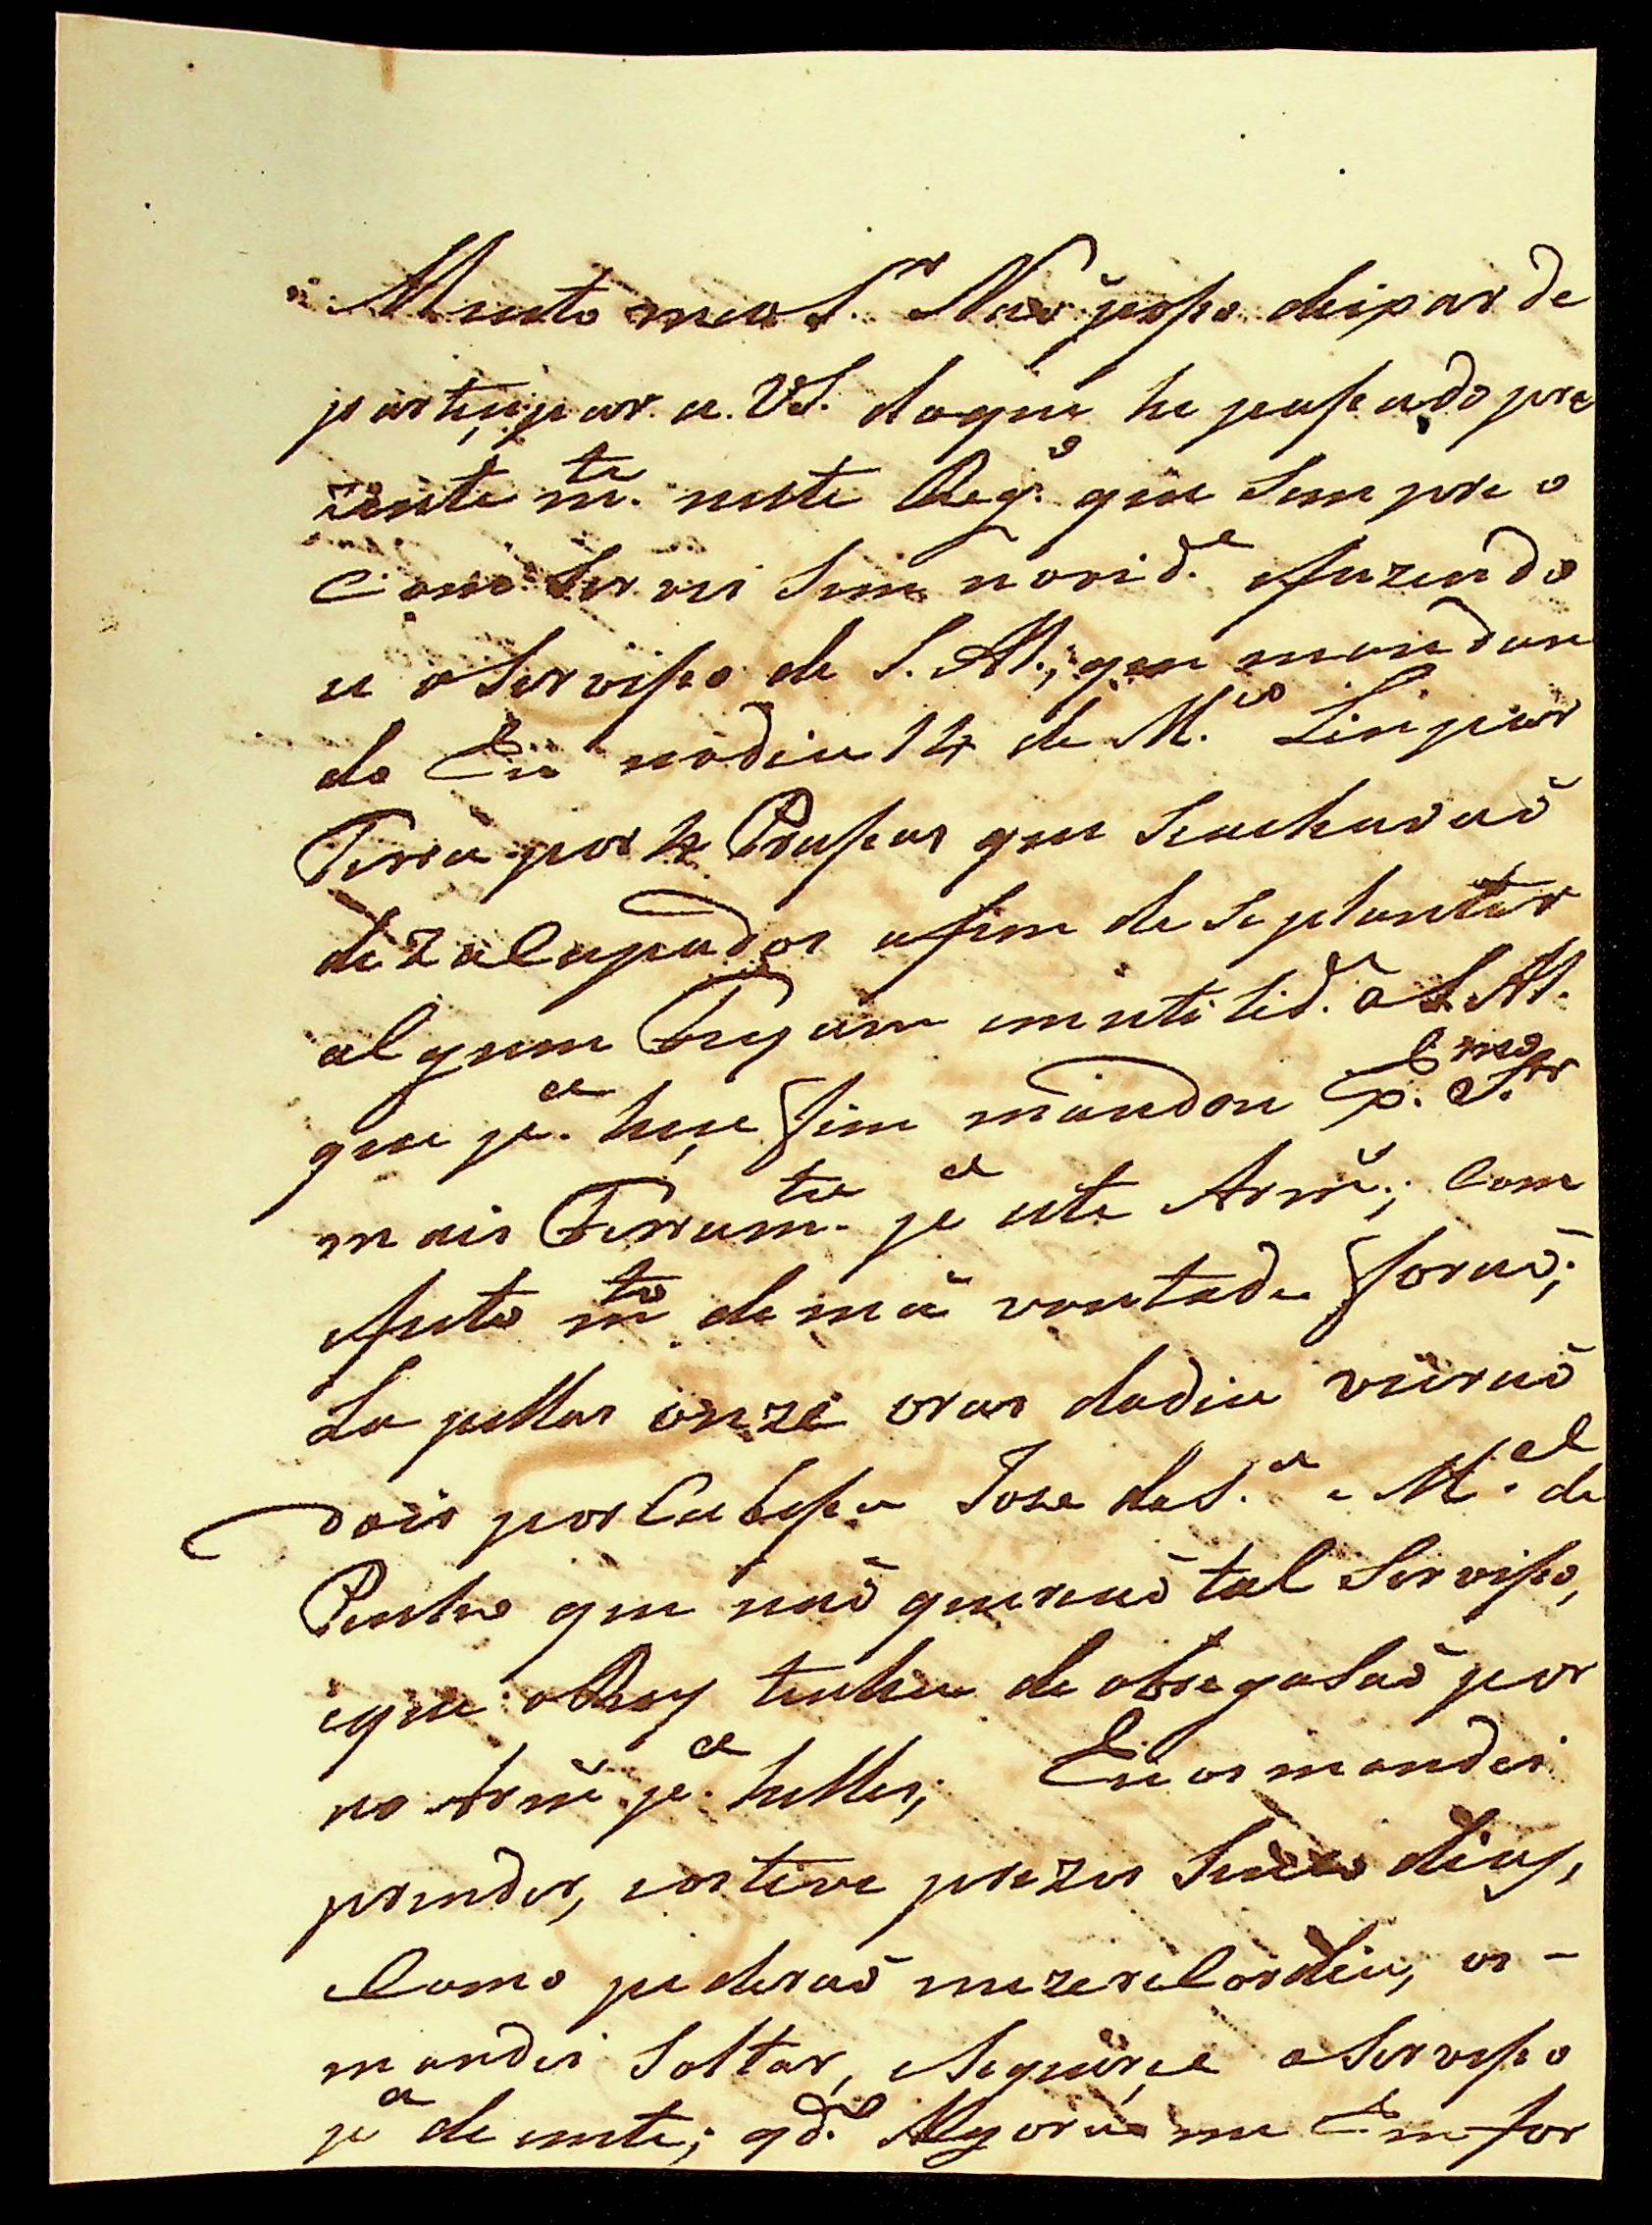 Muito meu S.r Naõ posso deixar de
partiçipar a VS. do que he passado pre
zente m.te neste Reg.o que sempre o
Conservei sem novid.e efazendo
se o Servisso de S. M., que mandan
do Eu nodia 14 de M.ço Linpar
Terra por 4 Prassas que seachavaõ
dezalcupados afim de se plantar
algum Trigo em utilid.e a S. M.
que p.a hese fim mandou o Ex.mo S.r
mais Ferram.ta p.a este Arm.; Com
efeito m.to de má vontade foraõ;
La pellas onze oras dodia vieraõ
dois por Cabessa Jose da S.a e M.el de
Penha que naõ queriaõ tal Servisso,
eque o Rey tinha de obrigasaõ por
no Arm. p.a helles; Eu os mandei
prender, eostive prezos Sinco dias,
Como pederaõ mezerlcordia, os -
mandei Soltar, eseguirçe o Servisso
p.a deente; q.do Agora me Emfor